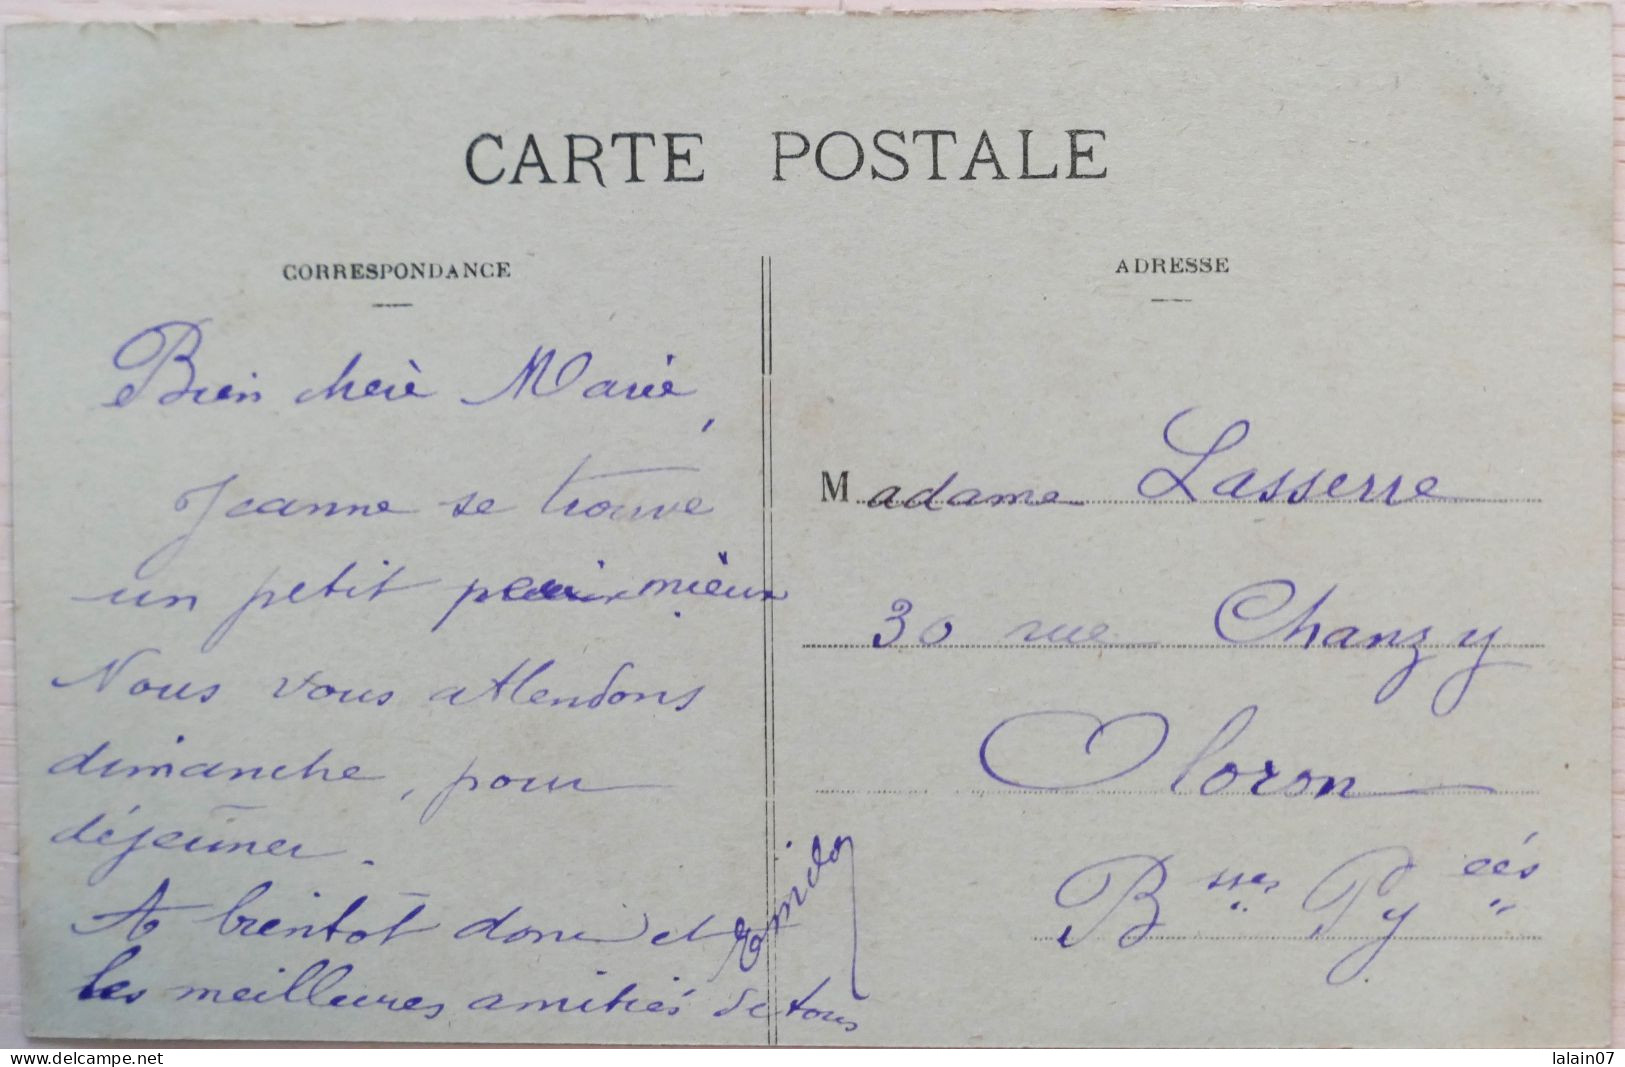 CARTE POSTALE
CORRESPONDANCE
Bien chère Marie,
Jeanne se trouve
un petit peu mieux.
Nous vous attendons
dimanche, pour
déjeuner.
A bientôt donc et
les meilleures amitiés de tous
ADRESSE
Madame Lasserre
30 rue Chanzy
Oloron
Bsses Pyées
www.delcampe.net
lalain07